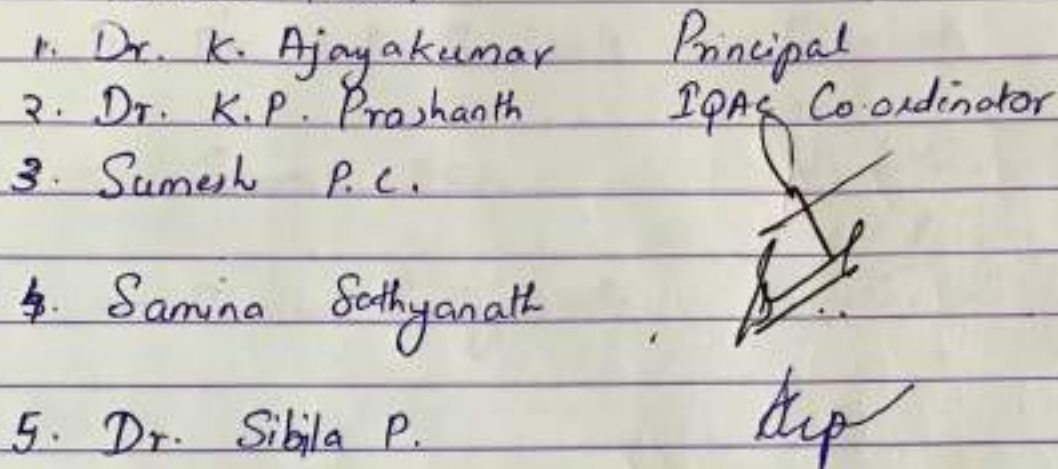 1. Dr. K. Ajayakumar Principal
2. Dr. K.P. Prashanth IQAC Co-ordinator
3. Sumesh P.C.
4. Samina Sathyanath
5. Dr. Sibila P.